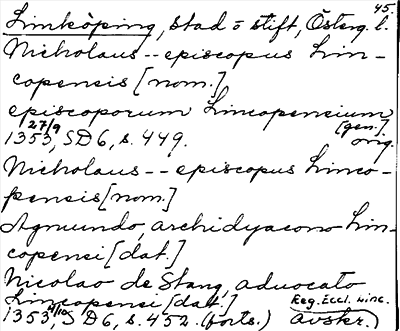 45.
Linköping, stad o stift, Österg. l.
Nicholaus -- episcopus Lin-
copensis [nom.]
episcoporum Lincopensium
[gen.]
1353 27/9, SD 6, s. 449. orig.
Nicholaus -- episcopus Linco-
pensis [nom.]
Agmundo, archidyacono Lin-
copensi [dat.]
Nicolao de Stang, aduocato
Lincopensi [dat.] Reg. Eccl. Linc.
1353 4/10, SD 6, s. 452. (forts.) avskr.)